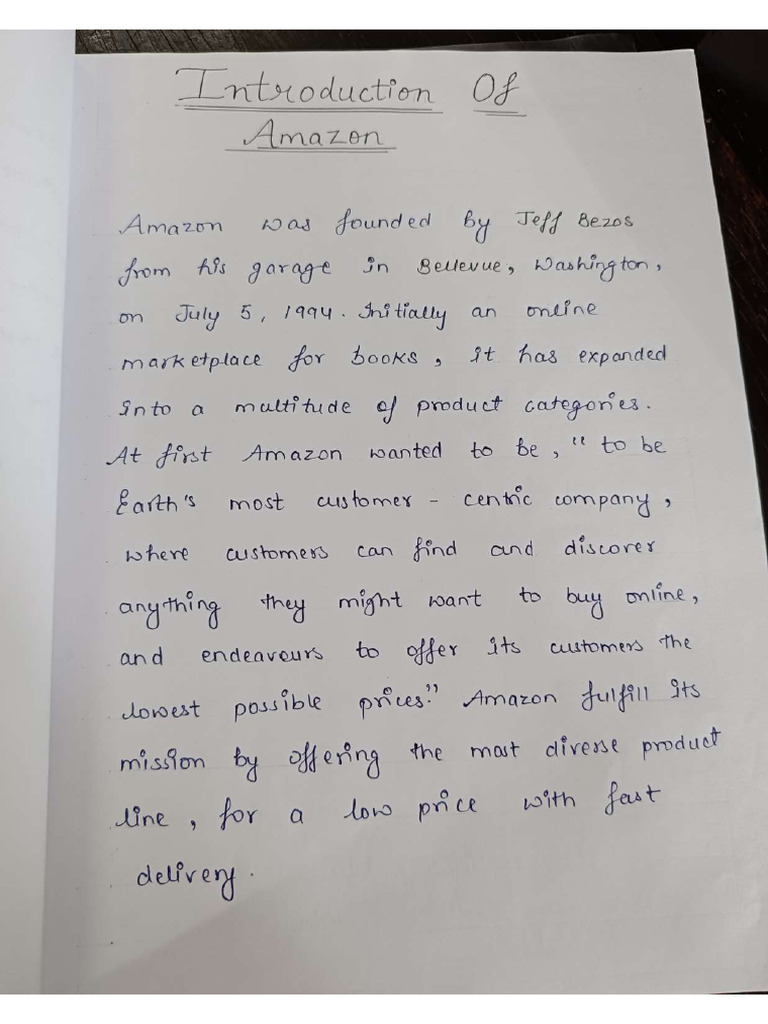 Introduction Of
Amazon
Amazon was founded by Jeff Bezos
from his garage in Bellevue, Washington,
on July 5, 1994. Initially an online
marketplace for books, it has expanded
into a multitude of product categories.
At first Amazon wanted to be, "to be
Earth's most customer - centric company,
where customers can find and discover
anything they might want to buy online,
and endeavours to offer its customers the
lowest possible prices." Amazon fulfill its
mission by offering the most diverse product
line, for a low price with fast
delivery.